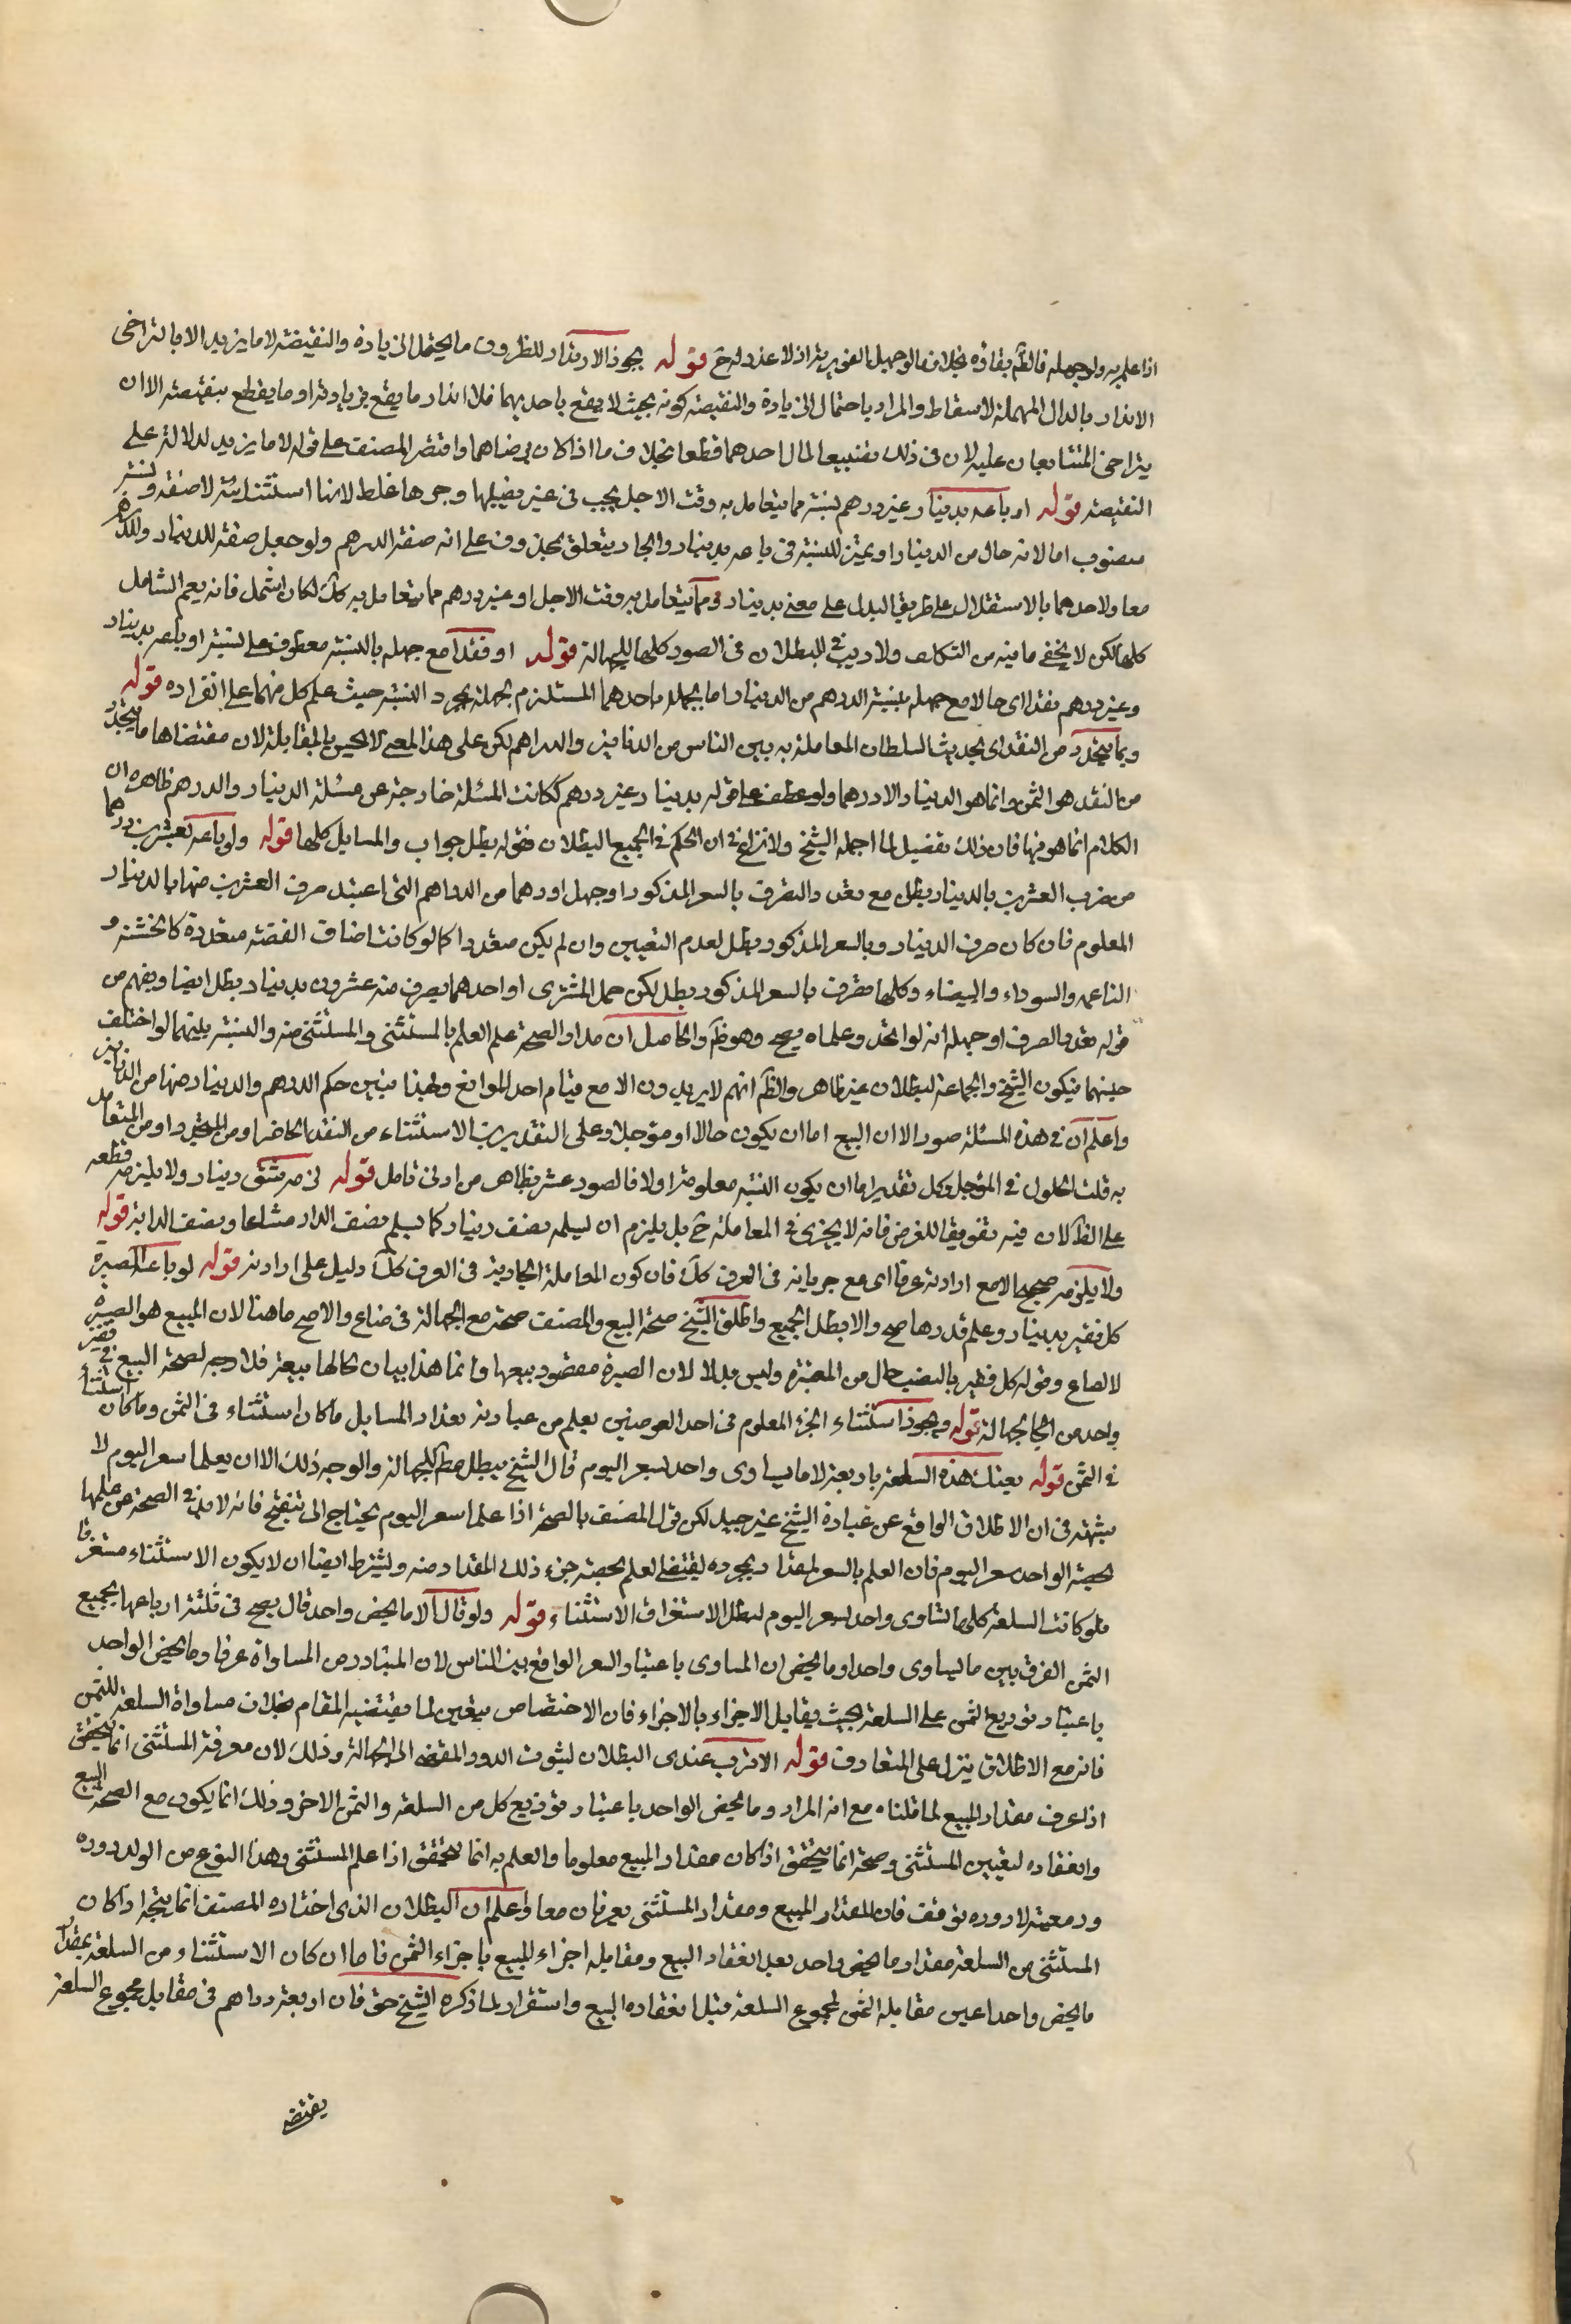 اذا علم به ولو جهله فالظ بقاؤه بخلاف ما لو جهل الفوريه اذ لا عذر له ح قوله يجوز الاندار للظروف ما يحتمل الزيادة والنقيصة لا ما يزيد الا بالتراضى
الاندار بالدال المهملة الاسقاط والمراد باحتمال الزيادة والنقيصة كونه بحيث لا يقطع باحديهما فلا اندار ما يقطع بزيادته او ما يقطع بنقيصته الا ان
يتراضى المتبايعان عليه لان فى ذلك تضييعا لمال احدهما قطعا بخلاف ما اذا كان برضاهما واقتصر المصنف على قوله لا ما يزيد لدلالته على
النقيصة قوله او باعه بدينار غير درهم نسبته مما يتعامل به وقت الاجل يجب فى غير نصبها وجرها غلط لانها استثنائية لا صفة ونسبته
منصوب اما لانه حال من الدينار او تميز للنسبة فى باعه بدينار والجار يتعلق بمحذوف على انه صفة الدرهم ولو جعل صفة للدينار والدرهم
معا ولاحدهما بالاستقلال على طريق البدل على معنى بدينار مما يتعامل به وقت الاجل او غير درهم مما يتعامل به كك لكان اشمل فانه يعم المسائل
كلها لكن لا يخفى ما فيه من التكلف ولا ريب فى البطلان فى الصور كلها للجهالة قوله او نقدا مع جهله بالنسبة معطوف على نسية او باعه بدينار
وغير درهم نقدا اى حالا مع جهله بنسبة الدرهم من الدينار اما بجهله باحدهما المستلزم لجهله بمجرد النسبة حيث علم كل منهما على انفراده قوله
وبما يتجدد من النقد اى بحديث السلطان المعاملة به بين الناس من الدنانير والدراهم لكن على هذا المعنى لا يحسن المقابلة لان مقتضاها ما يتجدد
من النقد هو الثمن وانما هو الدينار الا درهما ولو عطف على قوله بدينار غير درهم لكانت المسئلة خارجة عن مسئلة الدينار والدرهم ظاهره ان
الكلام انما هو فيها فان ذلك تفصيل لما اجمله الشيخ ولا نزاع فى ان الحكم فى الجميع البطلان فقوله بطل جواب والمسايل كلها قوله ولو باعه بعشرين درهما
من صرف العشرين بالدينار بطل مع تعدد الصرف بالسعر المذكور او جهل اودهما من الدراهم التى اعتبد صرف العشرين منها بالدينار
المعلوم فان كان صرف الدينار وبالسعر المذكور بطل لعدم التعيين وان لم يكن متعددا كما لو كانت اصناف الفضة متعددة كالخشنة و
الناعمه والسوداء والبيضاء وكلها مصرف بالسعر المذكور بطل لكن جهل المشترى او احدهما بصرف منه عشرون بدينار بطل ايضا ويفهم من
قوله تعدد الصرف او جهله انه لو اتحد وعلماه يصح وهو ظ والحاصل ان مدار الصحة علم العلم بالمستثنى والمستثنى منه والنسبة بينهما لو اختلف
جنسهما فيكون الشيخ والجماعة لبطلان غير ظاهر والظ انهم لا يريدون الا مع قيام احد الموانع ولهذا يتبين حكم الدرهم والدينار منها من الدنانير
واعلم ان فى هذه المسئلة صور الا ان البيع اما ان يكون حالا او مؤجلا وعلى التقديرين الاستثناء من النقد الحاضر او من المتجدد او من المتعامل
به قلت الحلول فى المؤجل وكل تقدير اما ان يكون النسبة معلومة او لا فالصور عشر يظاهر من ادنى تامل قوله لزمه شق دينار ولا يلزمه قطعه
على الظ لان فيه تفويتا للغرض فانه لا يجزى فى المعاملة ح بل يلزم ان يسلمه نصف دينار كما يسلم نصف الدار مشاعا ونصف الدابة قوله
ولا يلزمه صحيحا الا مع ارادته عرفا اى مع جريانه فى العرف كك فان كون المعاملة الجارية فى العرف كك دليل على ارادته قوله لو باعه الصبرة
كل قفيز بدينار وعلم قدرها صح والا بطل الجميع واطلق الشيخ صحة البيع والمصنف صحته مع الجهالة فى صاع والاصح ما هنا لان المبيع هو الصبرة
لا الصاع وقوله كل قفيز بالنصب حال من الصبرة وليس بدلا لان الصبرة مقصود بيعها وانما هذا بيان كالها بيعه فلا وجه لصحة البيع فى قفيز
واحد من الجا لجهالة قوله ويجوز استثناء الجزء المعلوم فى احد العوضين يعلم من عبارته تعداد المسايل ما كان استثناء فى الثمن وما كان استثناء
فى الثمن قوله بعتك هذه السلعة باربعة الا ما يساوى واحد بسعر اليوم قال الشيخ يبطل مط للجهالة والوجه ذلك الا ان يعلما سعر اليوم لا
شبهة فى ان الاطلاق الواقع عن عبارة الشيخ غير جيد لكن قول المصنف بالصحة اذا علما سعر اليوم يحتاج الى تنقيح فانه لا بد فى الصحة من علمها
بحصة الواحد سعر اليوم فان العلم بالسعر لمقدار بمجرده ليقتضى لعلم بحصة جزء ذلك المقدار منه ويشترط ايضا ان لا يكون الاستثناء مستغرقا
فلو كانت السلعة كلها تساوى واحد بسعر اليوم لبطل الاستغراق الاستثناء قوله ولو قال الا ما يخص واحد قال يصح فى ثلثة ارباعها بجميع
الثمن الفرق بين ما يساوى واحدا وما يخص ان المساوى باعتبار السعر الواقع بين الناس لان المتبادر من المساواة عرفا وما يخص الواحد
باعتبار توزيع الثمن على السلعة بحيث يقابل الاجزاء بالاجزاء فان الاختصاص يتعين لما يقتضيه المقام بخلاف مساواة السلعة للثمن
فانه مع الاطلاق ينزل على المتعارف قوله الاقرب عندى البطلان لثبوت الدور المفضى الى الجهالة وذلك لان معرفة المستثنى انما يتحقق
اذا عرف مقدار المبيع لما قلناه مع انه المراد وما يخص الواحد باعتبار توزيع كل من السلعة والثمن الاخر وذلك انما يكون مع الصحة البيع
وانعقاده لتعيين المستثنى وصحة انما يتحقق اذا كان مقدار المبيع معلوما والعلم به انما يتحقق اذا علم المستثنى وهذا النوع من الولد دوره
ودمعيته لا دوره توقف فان المقدار المبيع ومقدار المستثنى يعرفان معا واعلم ان البطلان الذى اختاره المصنف انما يتجه اذا كان
المستثنى من السلعة مقدار ما يخص واحد بعد انعقاد البيع ومقابله اجزاء المبيع باجزاء الثمن فاما ان كان الاستثناء من السلعة بمقدار
ما يخص واحدا عين مقابله الثمن لمجموع السلعة قبل انعقاده البيع واستقرار لما ذكره الشيخ حق فان اربعة دراهم فى مقابل مجموع السلعة
يقتضى